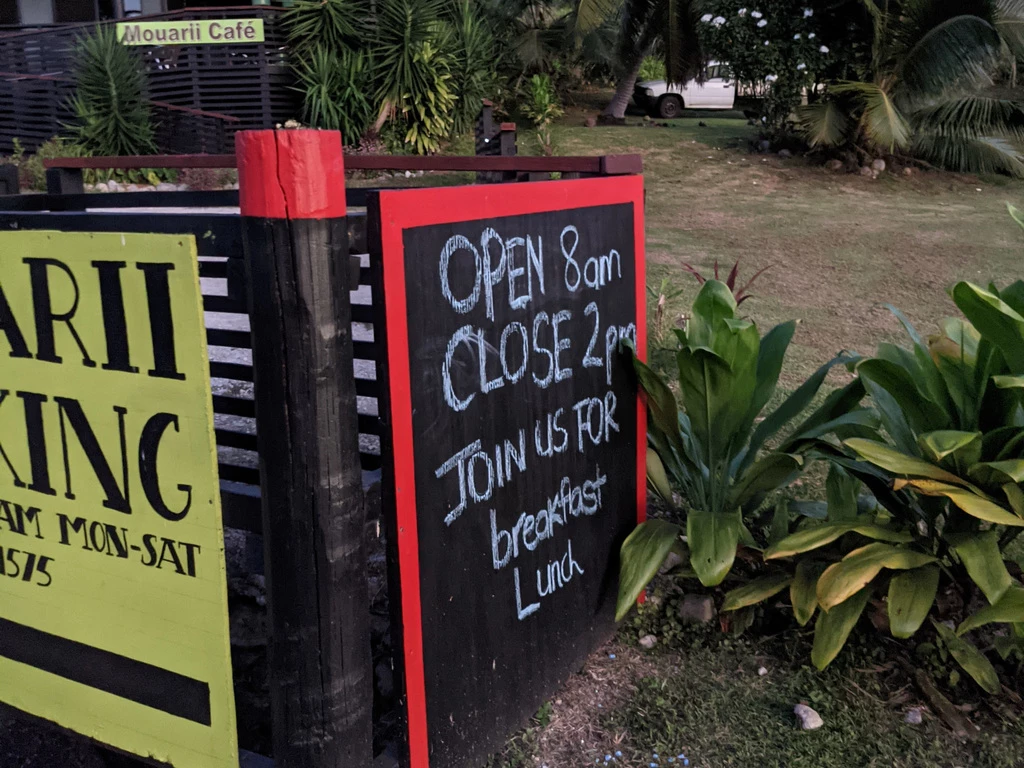 Mouarii Café
ARII
KING
AM MON-SAT
1575
OPEN 8am
CLOSE 2pm
JOIN US FOR
breakfast
Lunch